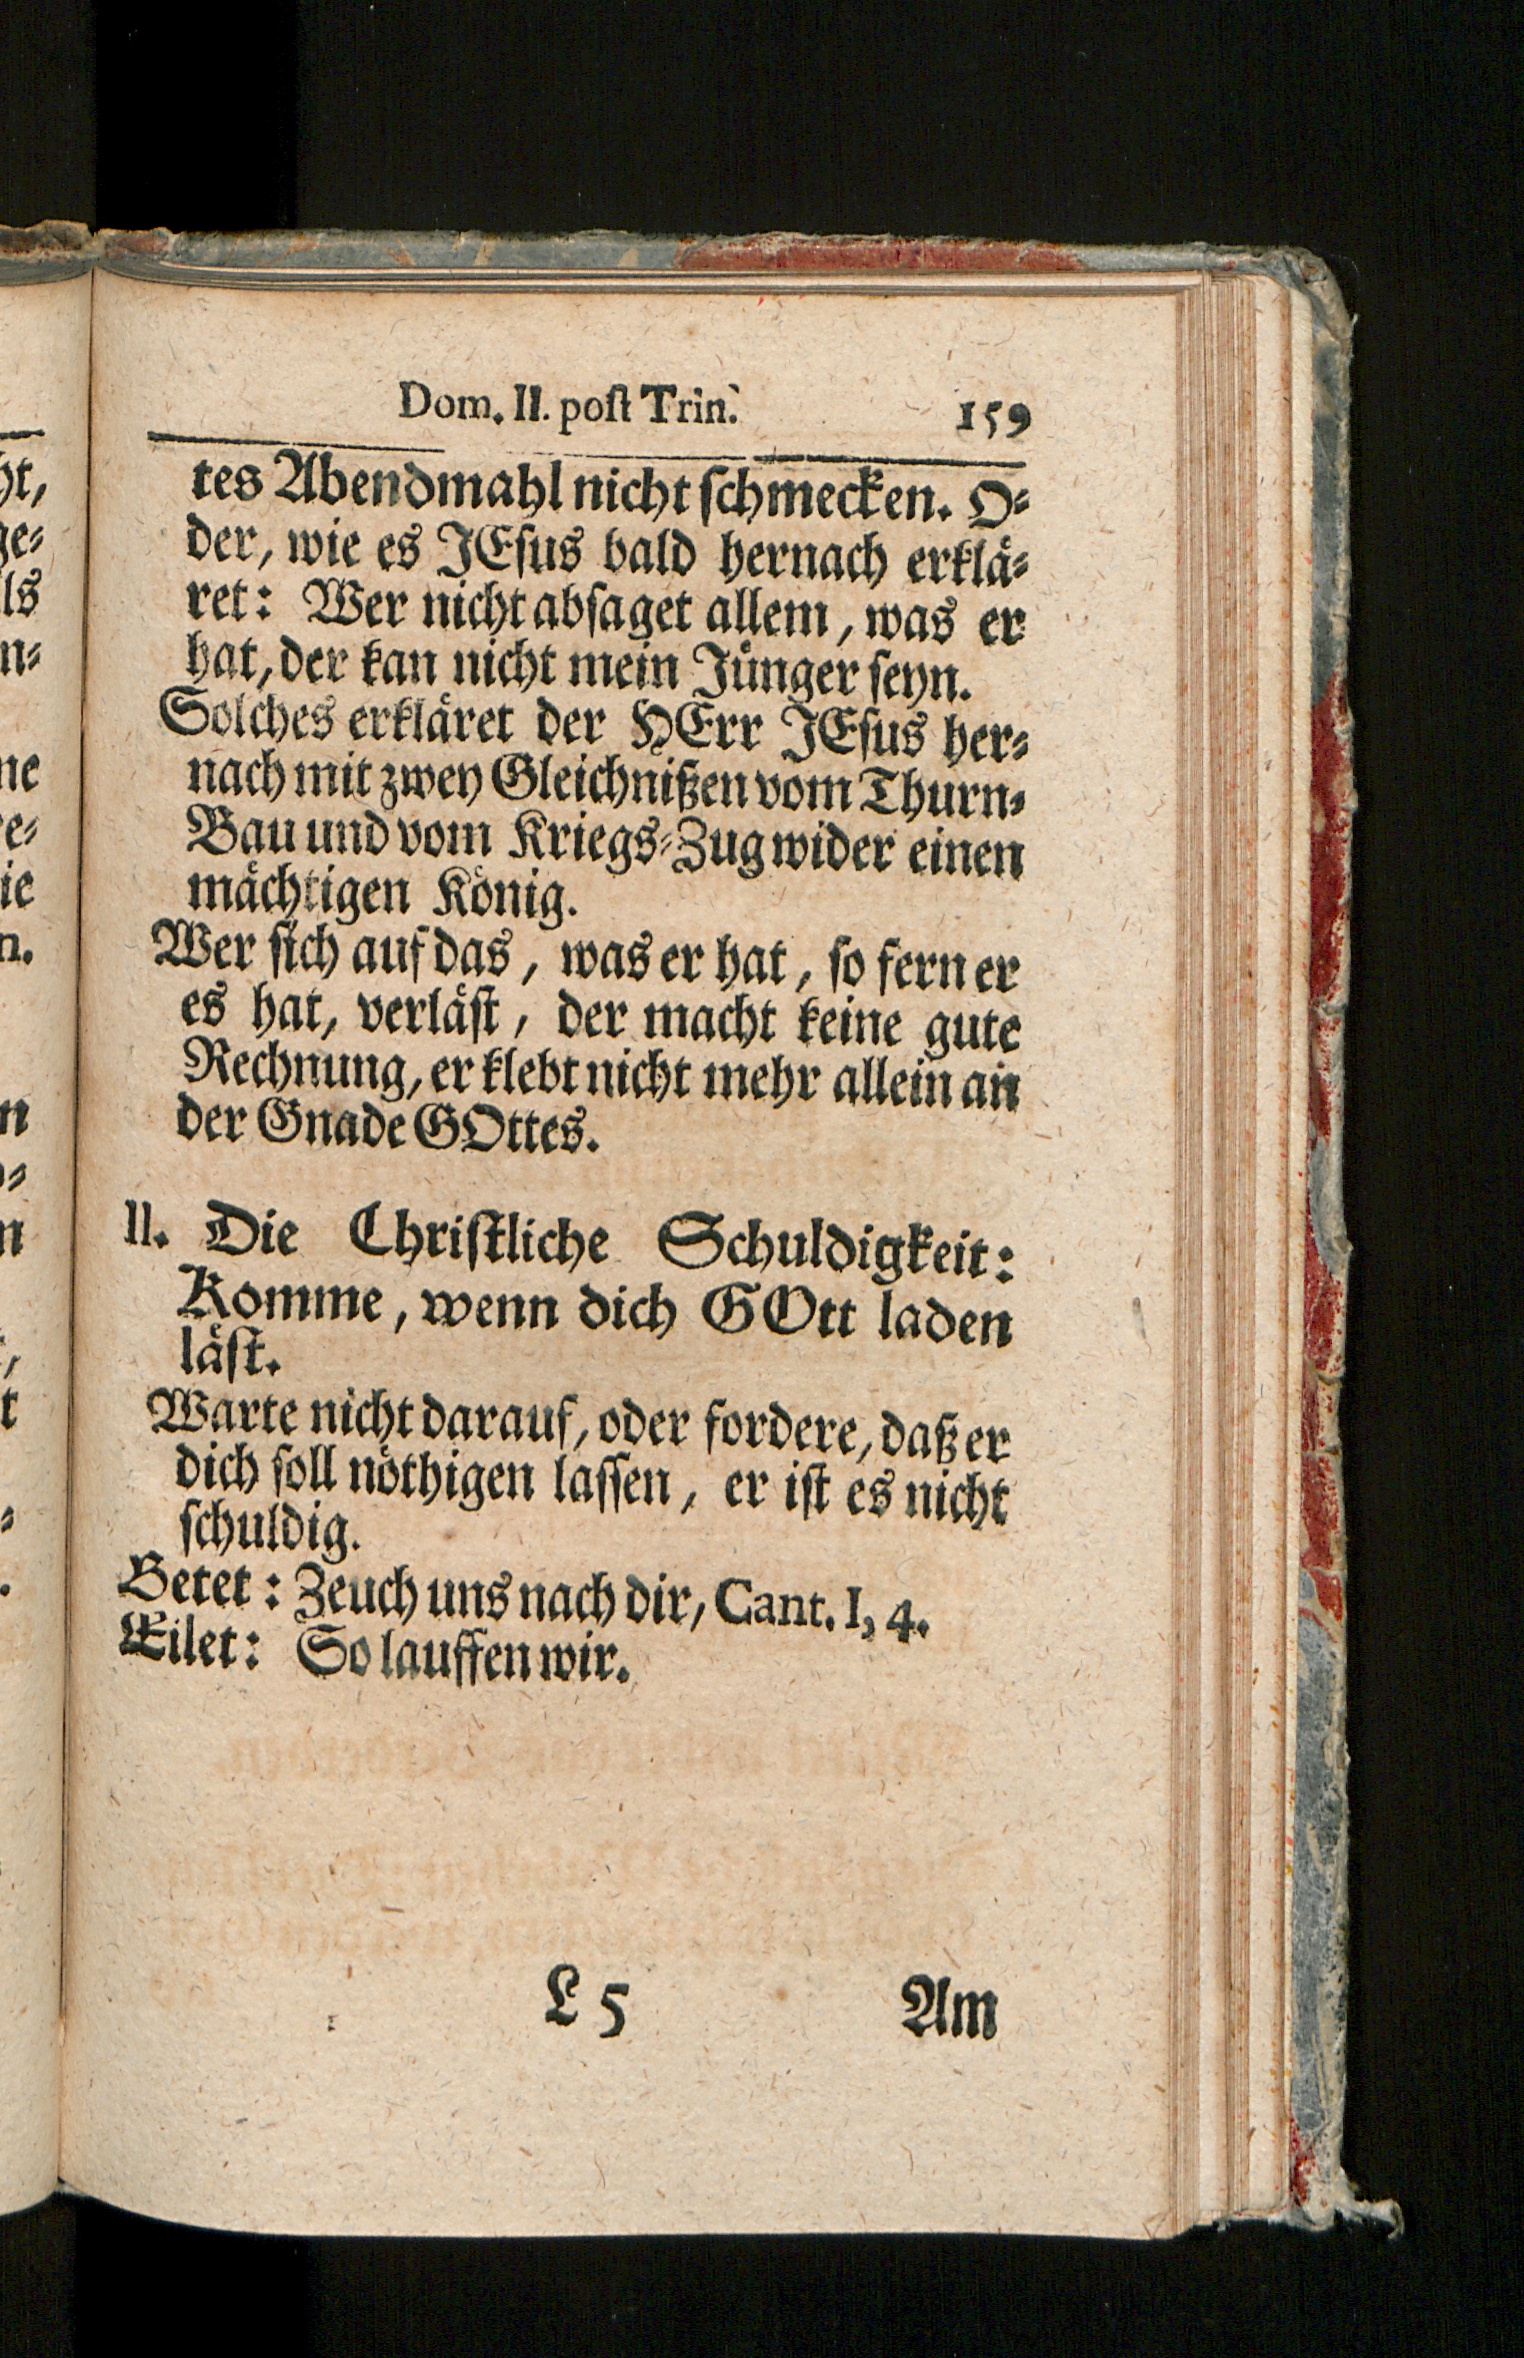 Dom. II. poſt Trin. 159
tes Abendmahl nicht ſchmecken. O⸗
der, wie es JEſus bald hernach erklaͤ⸗
ret: Wer nicht abſaget allem, was er
hat, der kan nicht mein Juͤnger ſeyn.
Solches erklaͤret der HErr JEſus her⸗
nach mit zwey Gleichnißen vom Thurn⸗
Bau und vom Kriegs⸗Zug wider einen
maͤchtigen Koͤnig.
Wer ſich auf das, was er hat, ſo fern er
es hat, verlaͤſt, der macht keine gute
Rechnung, er klebt nicht mehr allein an
der Gnade GOttes.
II. Die Chriſtliche Schuldigkeit:
Komme, wenn dich GOtt laden
laͤſt.
Warte nicht darauf, oder fordere, daß er
dich ſoll noͤthigen laſſen, er iſt es nicht
ſchuldig.
Betet: Zeuch uns nach dir, Cant. I, 4.
Eilet: So lauffen wir.
L 5 Am